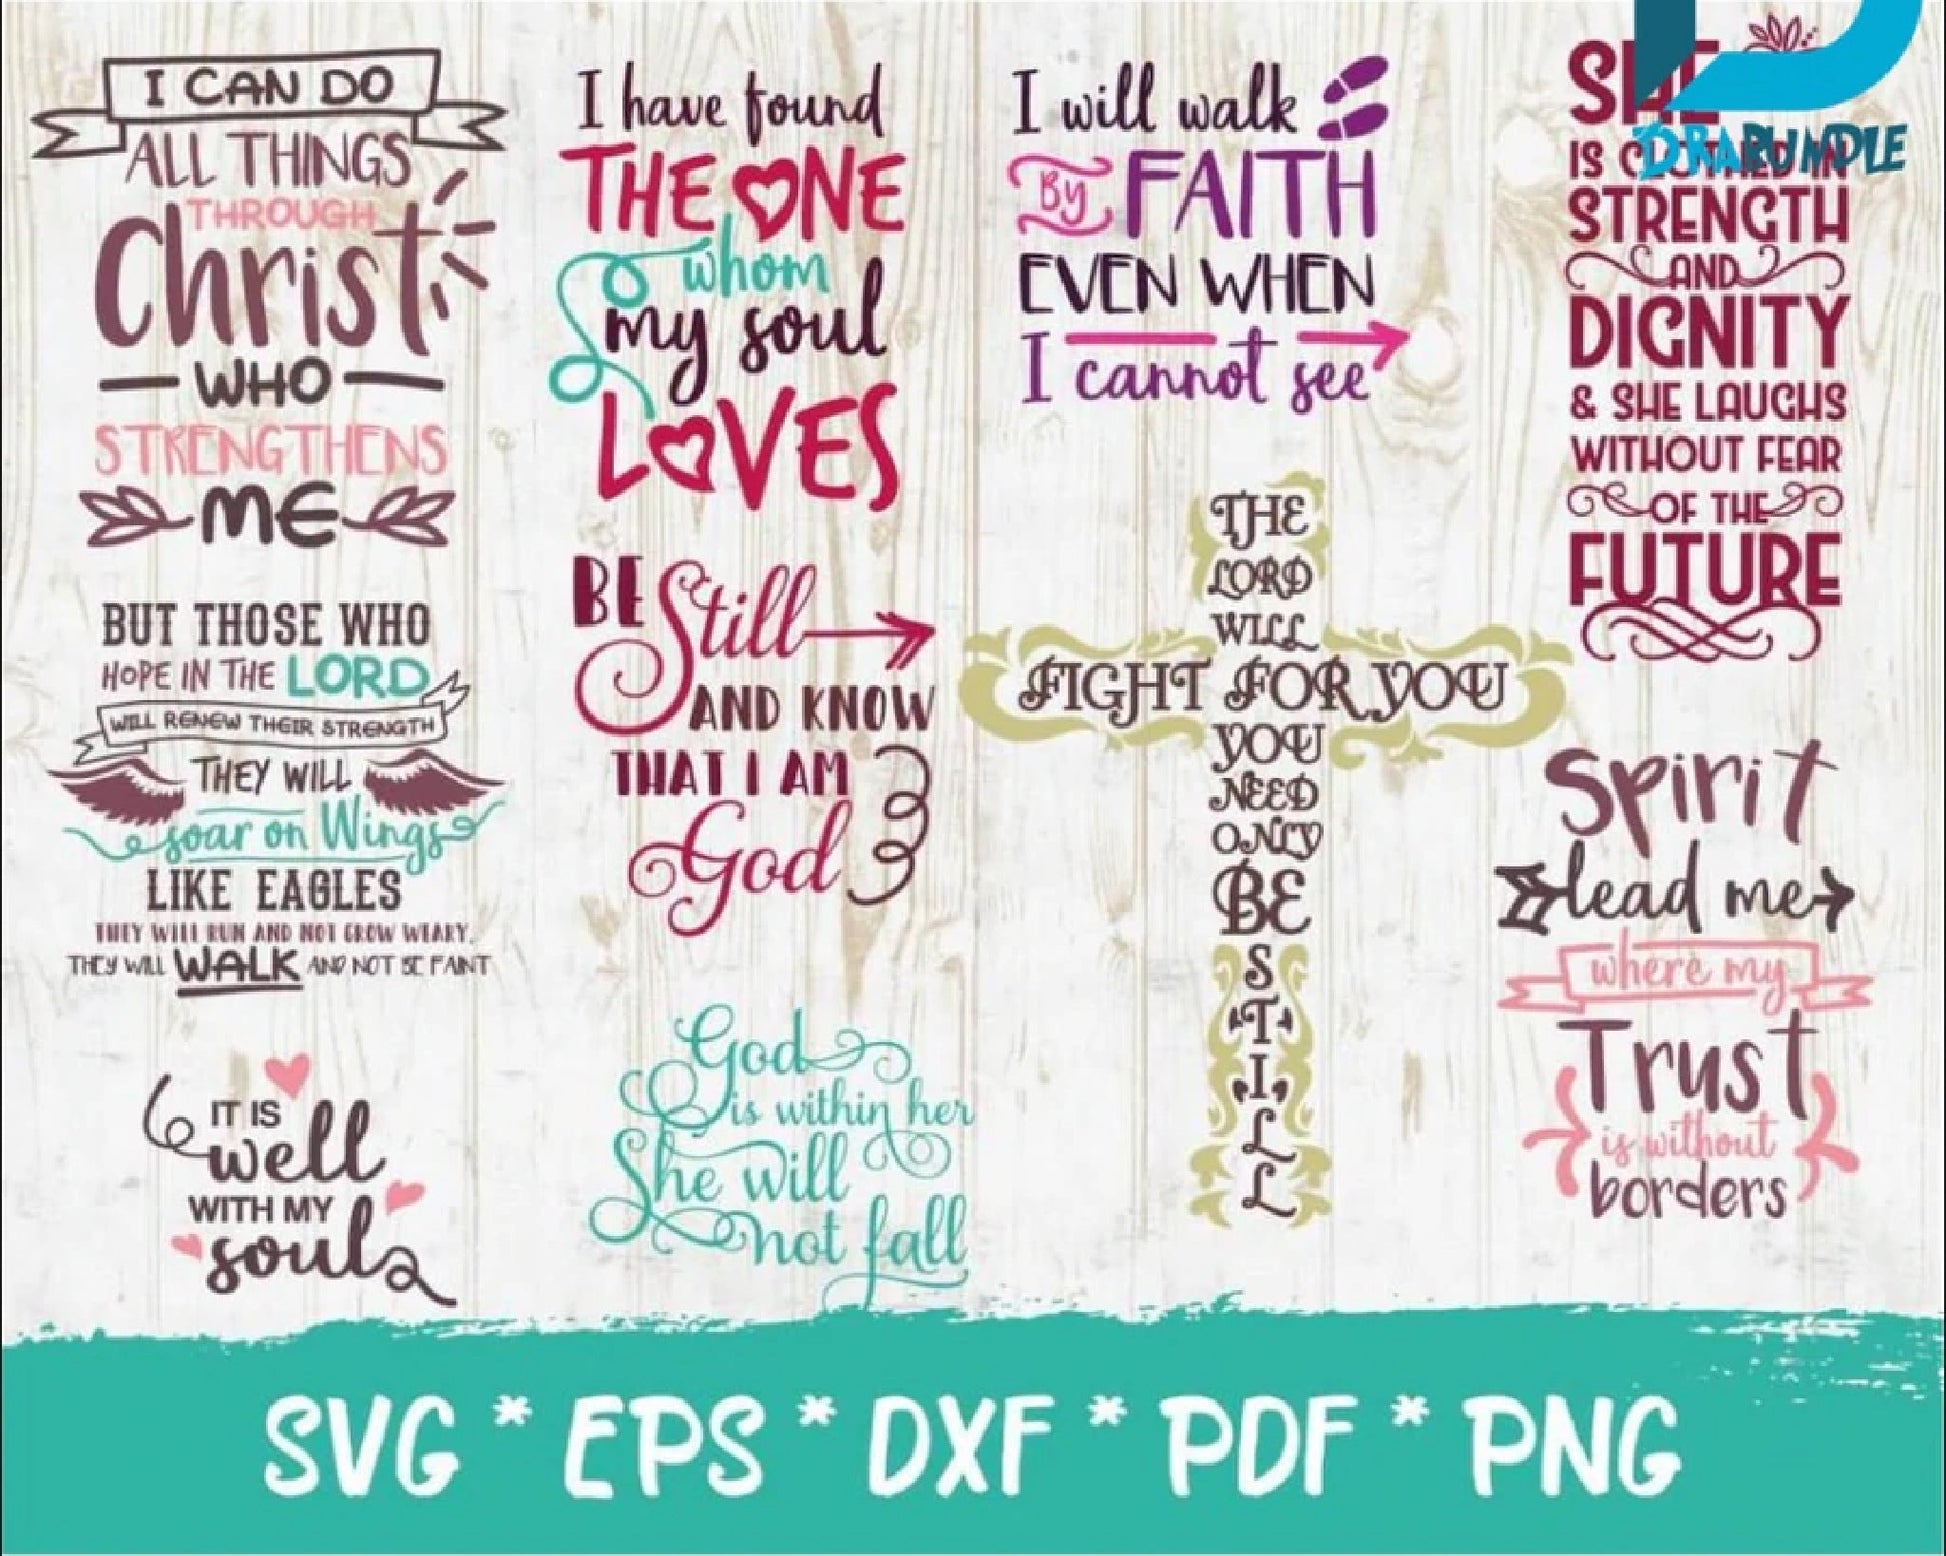 I CAN DO
ALL THINGS
THROUGH
Christ
WHO
STRENGTHENS
ME
BUT THOSE WHO
HOPE IN THE LORD
WILL RENEW THEIR STRENGTH
THEY WILL
soar on Wings
LIKE EAGLES
THEY WILL RUN AND NOT GROW WEARY.
THEY WILL WALK AND NOT BE FAINT
IT IS
well
WITH MY
soul
I have found
THE ONE
whom
my soul
LOVES
BE Still
AND KNOW
THAT I AM
God
God
is within her
She will
not fall
I will walk
BY FAITH
EVEN WHEN
I cannot see
THE
LORD
WILL
FIGHT FOR YOU
YOU
NEED
ONLY
BE
S
T
I
L
L
SHE
IS CLOTHED IN
STRENGTH
AND
DIGNITY
& SHE LAUGHS
WITHOUT FEAR
OF THE
FUTURE
DRABUNDLE
Spirit
lead me
where my
Trust
is without
borders
SVG * EPS * DXF * PDF * PNG